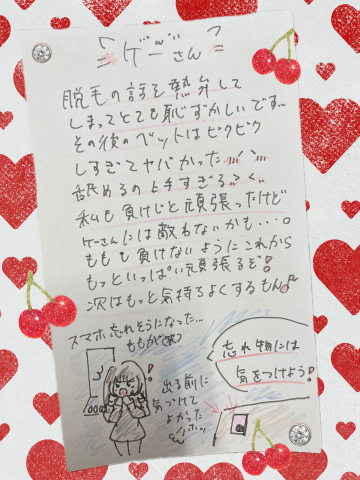 ゲーさん
脱毛の話を熱弁して
しまってとても恥ずかしいです。
その後のベットはビクビク
しすぎてヤバかった
舐めるの上手すぎる><
私も負けじと頑張ったけど
ケーさんには敵わないかも・・・。
ももも負けないようにこれから
もっといっぱい頑張るぞ!
次はもっと気持ちよくするもん♪
スマホ忘れそうになった...
ももが(笑)
出る前に
気づけて
よかった
ホッ
忘れ物には
気をつけよう!